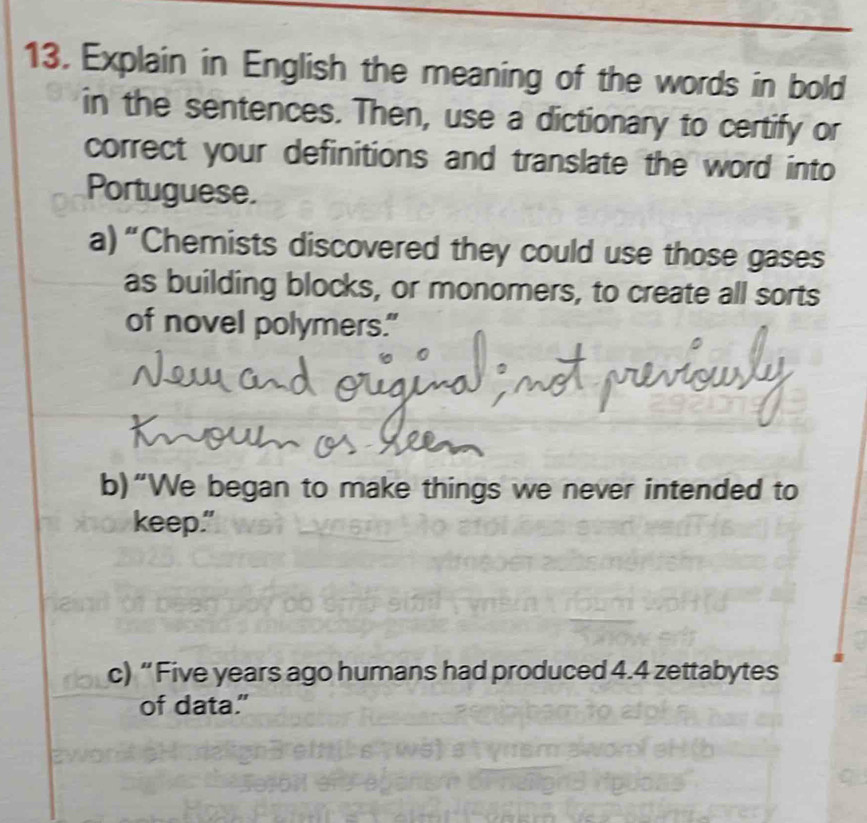 13. Explain in English the meaning of the words in bold
in the sentences. Then, use a dictionary to certify or
correct your definitions and translate the word into
Portuguese.
a) “Chemists discovered they could use those gases
as building blocks, or monomers, to create all sorts
of novel polymers.”
New and original; not previously
known os seen
b) “We began to make things we never intended to
keep.”
c) “Five years ago humans had produced 4.4 zettabytes
of data.”